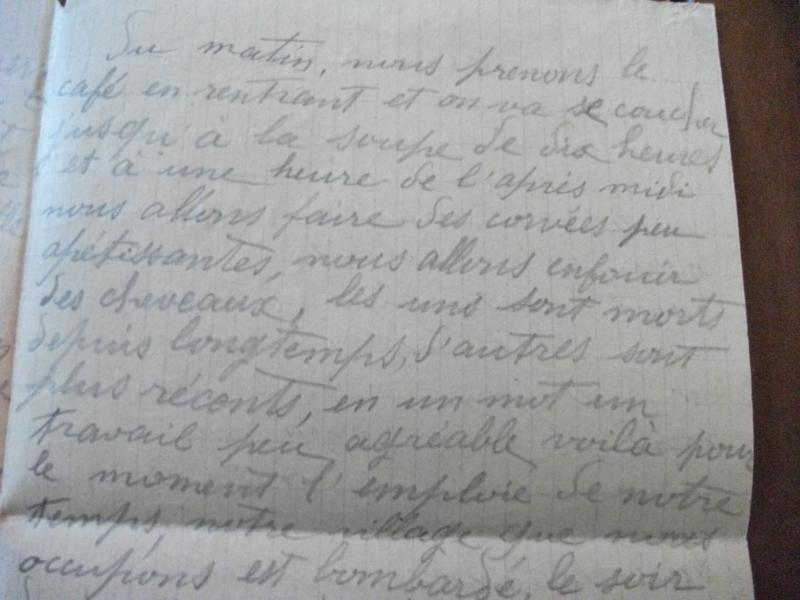 Du matin, nous prenons le
café en rentrant et on va se coucher
jusqu'à la soupe de dix heures
et à une heure de l'après midi
nous allons faire des corvées peu
apétissantes, nous allons enfouir
des cheveaux, les uns sont morts
depuis longtemps, d'autres sont
plus réconts, en un mot un
travail peu agréable voilà pour
le moment l'emploie de notre
temps, notre village que nous
occupons est bombardé, le soir